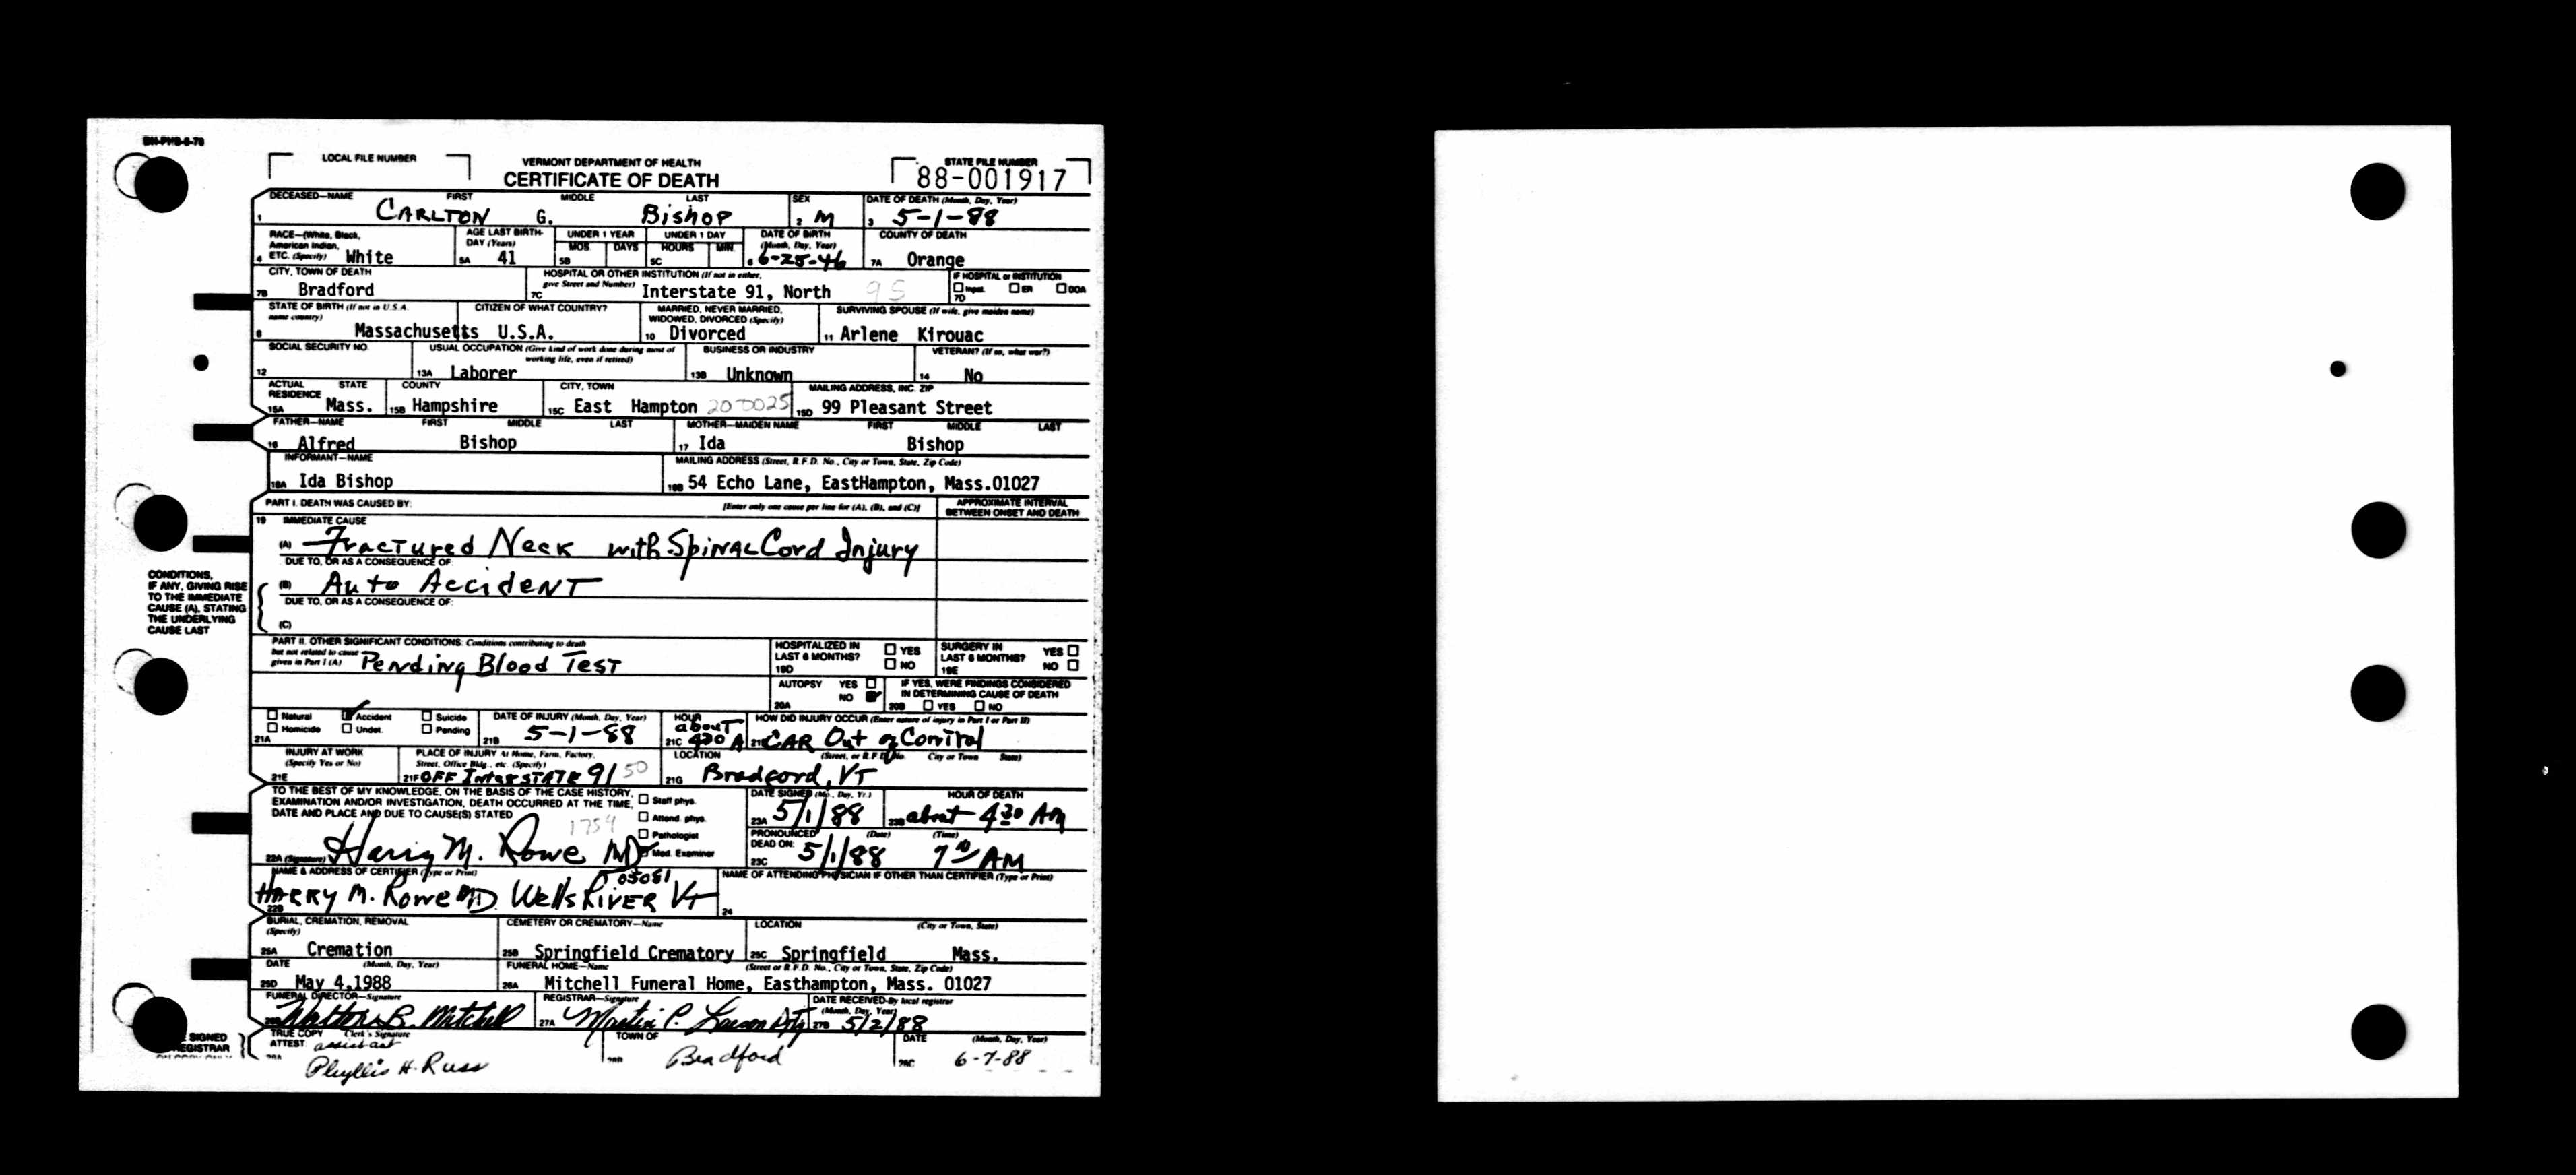 BH-PHB-5-78
LOCAL FILE NUMBER
VERMONT DEPARTMENT OF HEALTH
CERTIFICATE OF DEATH
STATE FILE NUMBER
88-001917
DECEASED—NAME FIRST MIDDLE LAST SEX DATE OF DEATH (Month, Day, Year)
1 CARLTON G. Bishop 2 M 3 5-1-88
RACE—(White, Black, American Indian, ETC. (Specify) AGE LAST BIRTHDAY (Years) UNDER 1 YEAR MOS DAYS UNDER 1 DAY HOURS MIN DATE OF BIRTH (Month, Day, Year) COUNTY OF DEATH
4 White 5A 41 5B 5C 6 6-25-46 7A Orange
CITY, TOWN OF DEATH HOSPITAL OR OTHER INSTITUTION (If not in either, give Street and Number) IF HOSPITAL or INSTITUTION
7B Bradford 7C Interstate 91, North 95 Inpat. ER DOA 7D
STATE OF BIRTH (If not in U.S.A. name country) CITIZEN OF WHAT COUNTRY? MARRIED, NEVER MARRIED, WIDOWED, DIVORCED (Specify) SURVIVING SPOUSE (If wife, give maiden name)
8 Massachusetts U.S.A. 10 Divorced 11 Arlene Kirouac
SOCIAL SECURITY NO. USUAL OCCUPATION (Give kind of work done during most of working life, even if retired) BUSINESS OR INDUSTRY VETERAN? (If so, what war?)
12 13A Laborer 13B Unknown 14 No
ACTUAL RESIDENCE STATE COUNTY CITY, TOWN MAILING ADDRESS, INC. ZIP
15A Mass. 15B Hampshire 15C East Hampton 20-0025 15D 99 Pleasant Street
FATHER—NAME FIRST MIDDLE LAST MOTHER—MAIDEN NAME FIRST MIDDLE LAST
16 Alfred Bishop 17 Ida Bishop
INFORMANT—NAME MAILING ADDRESS (Street, R.F.D. No., City or Town, State, Zip Code)
18A Ida Bishop 18B 54 Echo Lane, EastHampton, Mass.01027
PART I. DEATH WAS CAUSED BY: [Enter only one cause per line for (A), (B), and (C)] APPROXIMATE INTERVAL BETWEEN ONSET AND DEATH
19 IMMEDIATE CAUSE
(A) Fractured Neck with Spinal Cord Injury
DUE TO, OR AS A CONSEQUENCE OF:
CONDITIONS, IF ANY, GIVING RISE TO THE IMMEDIATE CAUSE (A), STATING THE UNDERLYING CAUSE LAST
(B) Auto Accident
DUE TO, OR AS A CONSEQUENCE OF:
(C)
PART II. OTHER SIGNIFICANT CONDITIONS: Conditions contributing to death but not related to cause given in Part I (A) Pending Blood Test
HOSPITALIZED IN LAST 6 MONTHS? YES NO 19D SURGERY IN LAST 6 MONTHS? YES NO 19E
AUTOPSY YES NO 20A IF YES, WERE FINDINGS CONSIDERED IN DETERMINING CAUSE OF DEATH 20B YES NO
Natural Accident Suicide DATE OF INJURY (Month, Day, Year) HOUR HOW DID INJURY OCCUR (Enter nature of injury in Part I or Part II)
Homicide Undet. Pending
21A 21B 5-1-88 21C about 430 A 21D CAR Out of Control
INJURY AT WORK (Specify Yes or No) PLACE OF INJURY At Home, Farm, Factory, Street, Office Bldg., etc. (Specify) LOCATION (Street, or R.F.D. No. City or Town State)
21E 21F OFF Interstate 91 50 21G Bradford, VT
TO THE BEST OF MY KNOWLEDGE, ON THE BASIS OF THE CASE HISTORY, EXAMINATION AND/OR INVESTIGATION, DEATH OCCURRED AT THE TIME, DATE AND PLACE AND DUE TO CAUSE(S) STATED
Staff phys. Attend. phys. Pathologist Med. Examiner
1754
22A (Signature) Harry M. Rowe MD
DATE SIGNED (Mo., Day, Yr.) HOUR OF DEATH
23A 5/1/88 23B about 430 AM
PRONOUNCED DEAD ON: (Date) (Time)
23C 5/1/88 710 AM
NAME & ADDRESS OF CERTIFIER (Type or Print) NAME OF ATTENDING PHYSICIAN IF OTHER THAN CERTIFIER (Type or Print)
22B HARRY M. Rowe MD. Wells RIVER VT 05081 24
BURIAL, CREMATION, REMOVAL (Specify) CEMETERY OR CREMATORY—Name LOCATION (City or Town, State)
25A Cremation 25B Springfield Crematory 25C Springfield Mass.
DATE (Month, Day, Year) FUNERAL HOME—Name (Street or R.F.D. No., City or Town, State, Zip Code)
25D May 4,1988 26A Mitchell Funeral Home, Easthampton, Mass. 01027
FUNERAL DIRECTOR—Signature REGISTRAR—Signature DATE RECEIVED—By local registrar (Month, Day, Year)
26B R. Mitchell 27A P. 27B 5/2/88
SIGNED REGISTRAR
TRUE COPY ATTEST: Clerk's Signature TOWN OF DATE (Month, Day, Year)
assistant Phyllis H. Russ 28B Bradford 28C 6-7-88